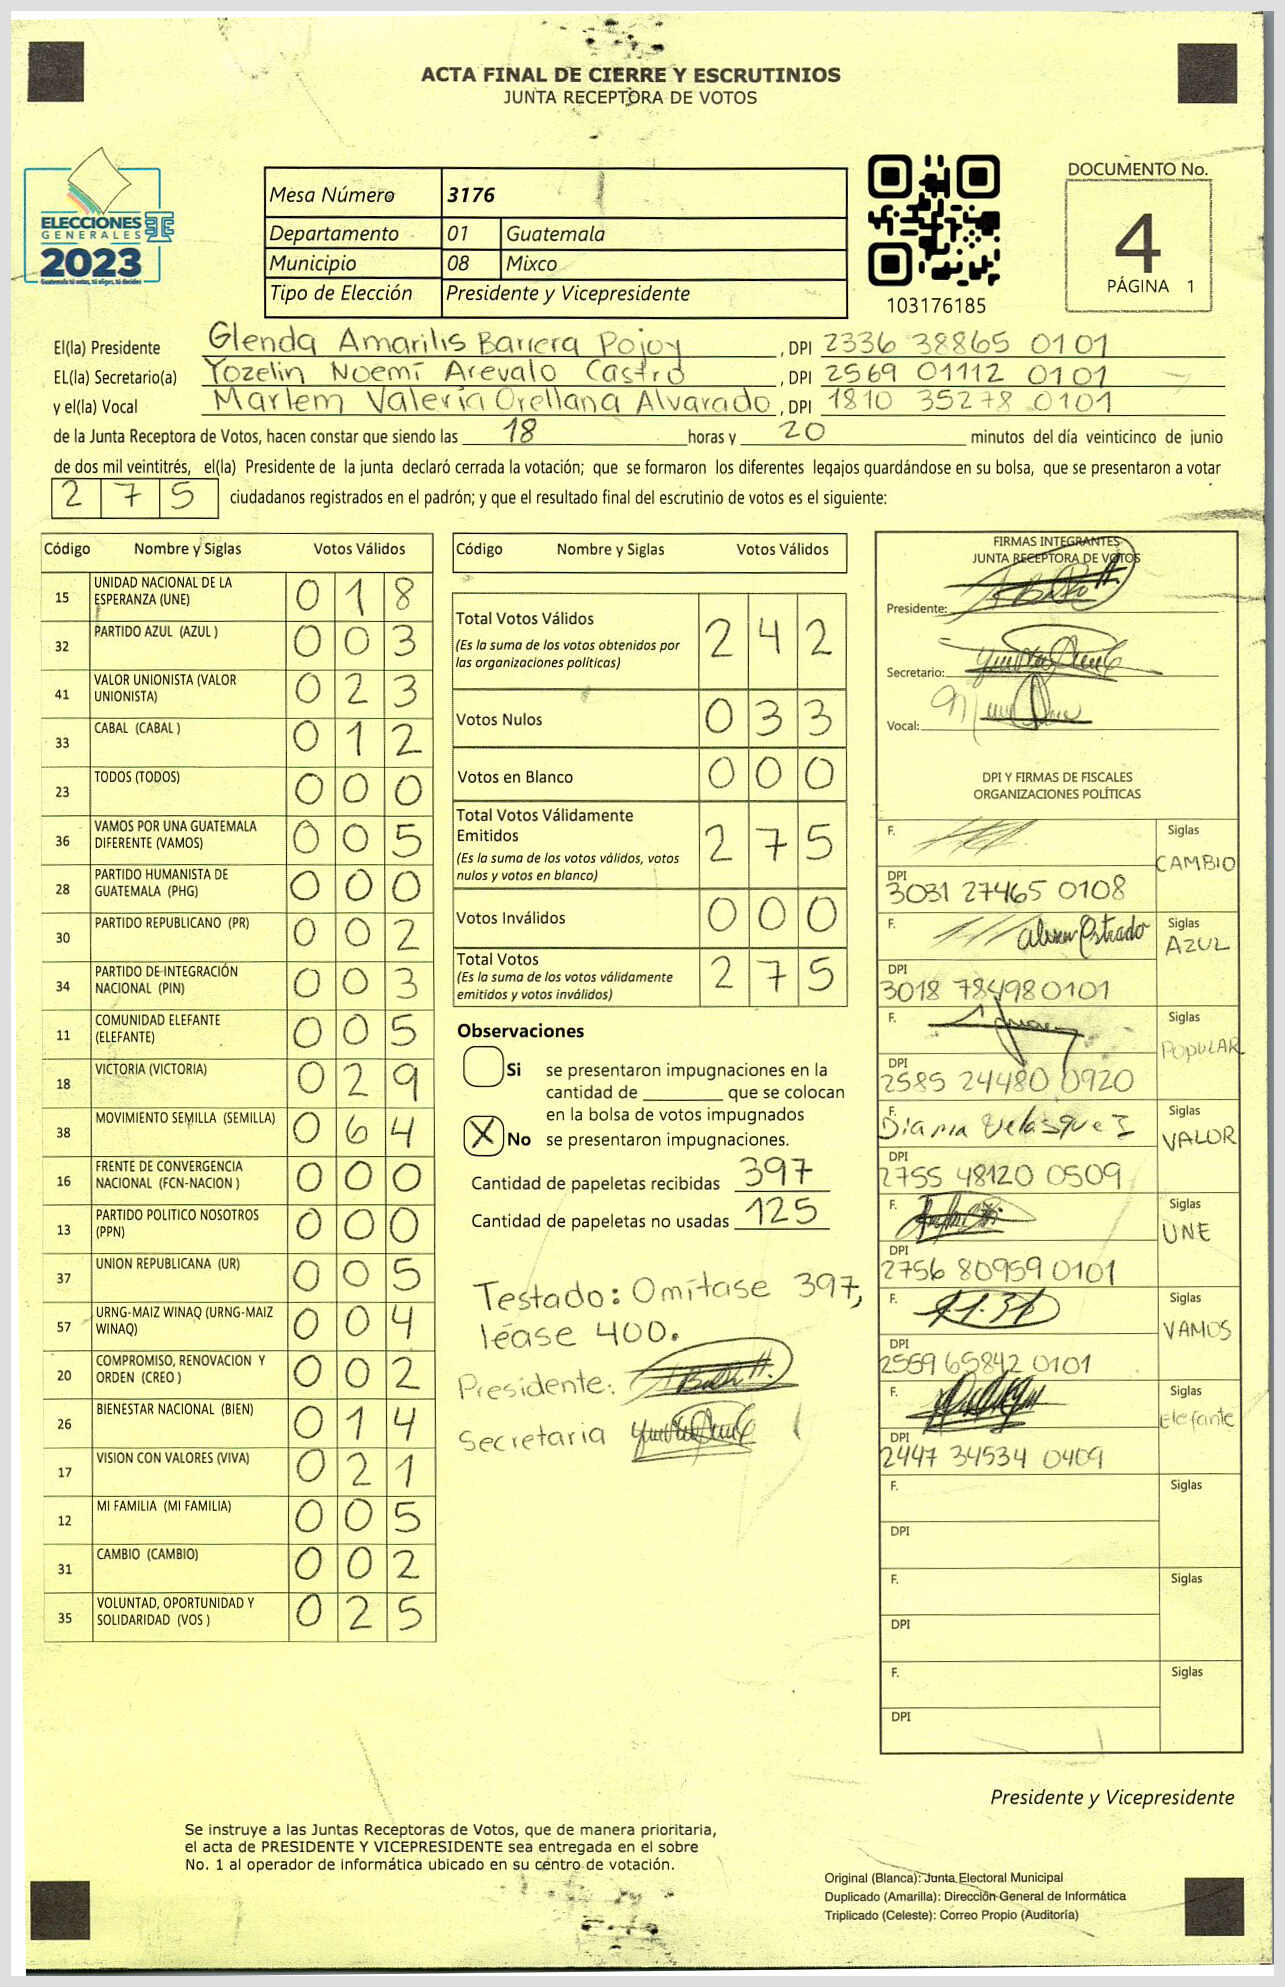 ACTA FINAL DE CIERRE Y ESCRUTINIOS
JUNTA RECEPTORA DE VOTOS
ELECCIONES
GENERALES
2023
Guatemala tú votas, tú eliges, tú decides
Mesa Número 3176
Departamento 01 Guatemala
Municipio 08 Mixco
Tipo de Elección Presidente y Vicepresidente
103176185
DOCUMENTO No.
4
PÁGINA 1
El(la) Presidente Glenda Amarilis Barrera Pojoy, DPI 2336 38865 0101
EL(la) Secretario(a) Yozelin Noemí Arevalo Castro, DPI 2569 01112 0101
y el(la) Vocal Marlem Valeria Orellana Alvarado, DPI 1810 35278 0101
de la Junta Receptora de Votos, hacen constar que siendo las 18 horas y 20 minutos del día veinticinco de junio
de dos mil veintitrés, el(la) Presidente de la junta declaró cerrada la votación; que se formaron los diferentes legajos guardándose en su bolsa, que se presentaron a votar
275 ciudadanos registrados en el padrón; y que el resultado final del escrutinio de votos es el siguiente:
Código Nombre y Siglas Votos Válidos
15 UNIDAD NACIONAL DE LA ESPERANZA (UNE) 018
32 PARTIDO AZUL (AZUL ) 003
41 VALOR UNIONISTA (VALOR UNIONISTA) 023
33 CABAL (CABAL ) 012
23 TODOS (TODOS) 000
36 VAMOS POR UNA GUATEMALA DIFERENTE (VAMOS) 005
28 PARTIDO HUMANISTA DE GUATEMALA (PHG) 000
30 PARTIDO REPUBLICANO (PR) 002
34 PARTIDO DE INTEGRACIÓN NACIONAL (PIN) 003
11 COMUNIDAD ELEFANTE (ELEFANTE) 005
18 VICTORIA (VICTORIA) 029
38 MOVIMIENTO SEMILLA (SEMILLA) 064
16 FRENTE DE CONVERGENCIA NACIONAL (FCN-NACION ) 000
13 PARTIDO POLITICO NOSOTROS (PPN) 000
37 UNION REPUBLICANA (UR) 005
57 URNG-MAIZ WINAQ (URNG-MAIZ WINAQ) 004
20 COMPROMISO, RENOVACION Y ORDEN (CREO ) 002
26 BIENESTAR NACIONAL (BIEN) 014
17 VISION CON VALORES (VIVA) 021
12 MI FAMILIA (MI FAMILIA) 005
31 CAMBIO (CAMBIO) 002
35 VOLUNTAD, OPORTUNIDAD Y SOLIDARIDAD (VOS ) 025
Código Nombre y Siglas Votos Válidos
Total Votos Válidos 242
(Es la suma de los votos obtenidos por
las organizaciones políticas)
Votos Nulos 033
Votos en Blanco 000
Total Votos Válidamente
Emitidos 275
(Es la suma de los votos válidos, votos
nulos y votos en blanco)
Votos Inválidos 000
Total Votos 275
(Es la suma de los votos válidamente
emitidos y votos inválidos)
Observaciones
Si se presentaron impugnaciones en la
cantidad de ________ que se colocan
en la bolsa de votos impugnados
X No se presentaron impugnaciones.
Cantidad de papeletas recibidas 397
Cantidad de papeletas no usadas 125
Testado: Omítase 397,
léase 400.
Presidente:
Secretaria
FIRMAS INTEGRANTES
JUNTA RECEPTORA DE VOTOS
Presidente:
Secretario:
Vocal:
DPI Y FIRMAS DE FISCALES
ORGANIZACIONES POLÍTICAS
F. Siglas CAMBIO
DPI 3031 27465 0108
F. Siglas AZUL
DPI 3018 78498 0101
F. Siglas POPULAR
DPI 2585 24480 0920
F. Diana Velasquez Siglas VALOR
DPI 2755 48120 0509
F. Siglas UNE
DPI 2756 80959 0101
F. Siglas VAMOS
DPI 2559 65842 0101
F. Siglas Elefante
DPI 2447 34534 0409
F. Siglas
DPI
F. Siglas
DPI
F. Siglas
DPI
Presidente y Vicepresidente
Se instruye a las Juntas Receptoras de Votos, que de manera prioritaria,
el acta de PRESIDENTE Y VICEPRESIDENTE sea entregada en el sobre
No. 1 al operador de informática ubicado en su centro de votación.
Original (Blanca): Junta Electoral Municipal
Duplicado (Amarilla): Dirección General de Informática
Triplicado (Celeste): Correo Propio (Auditoría)